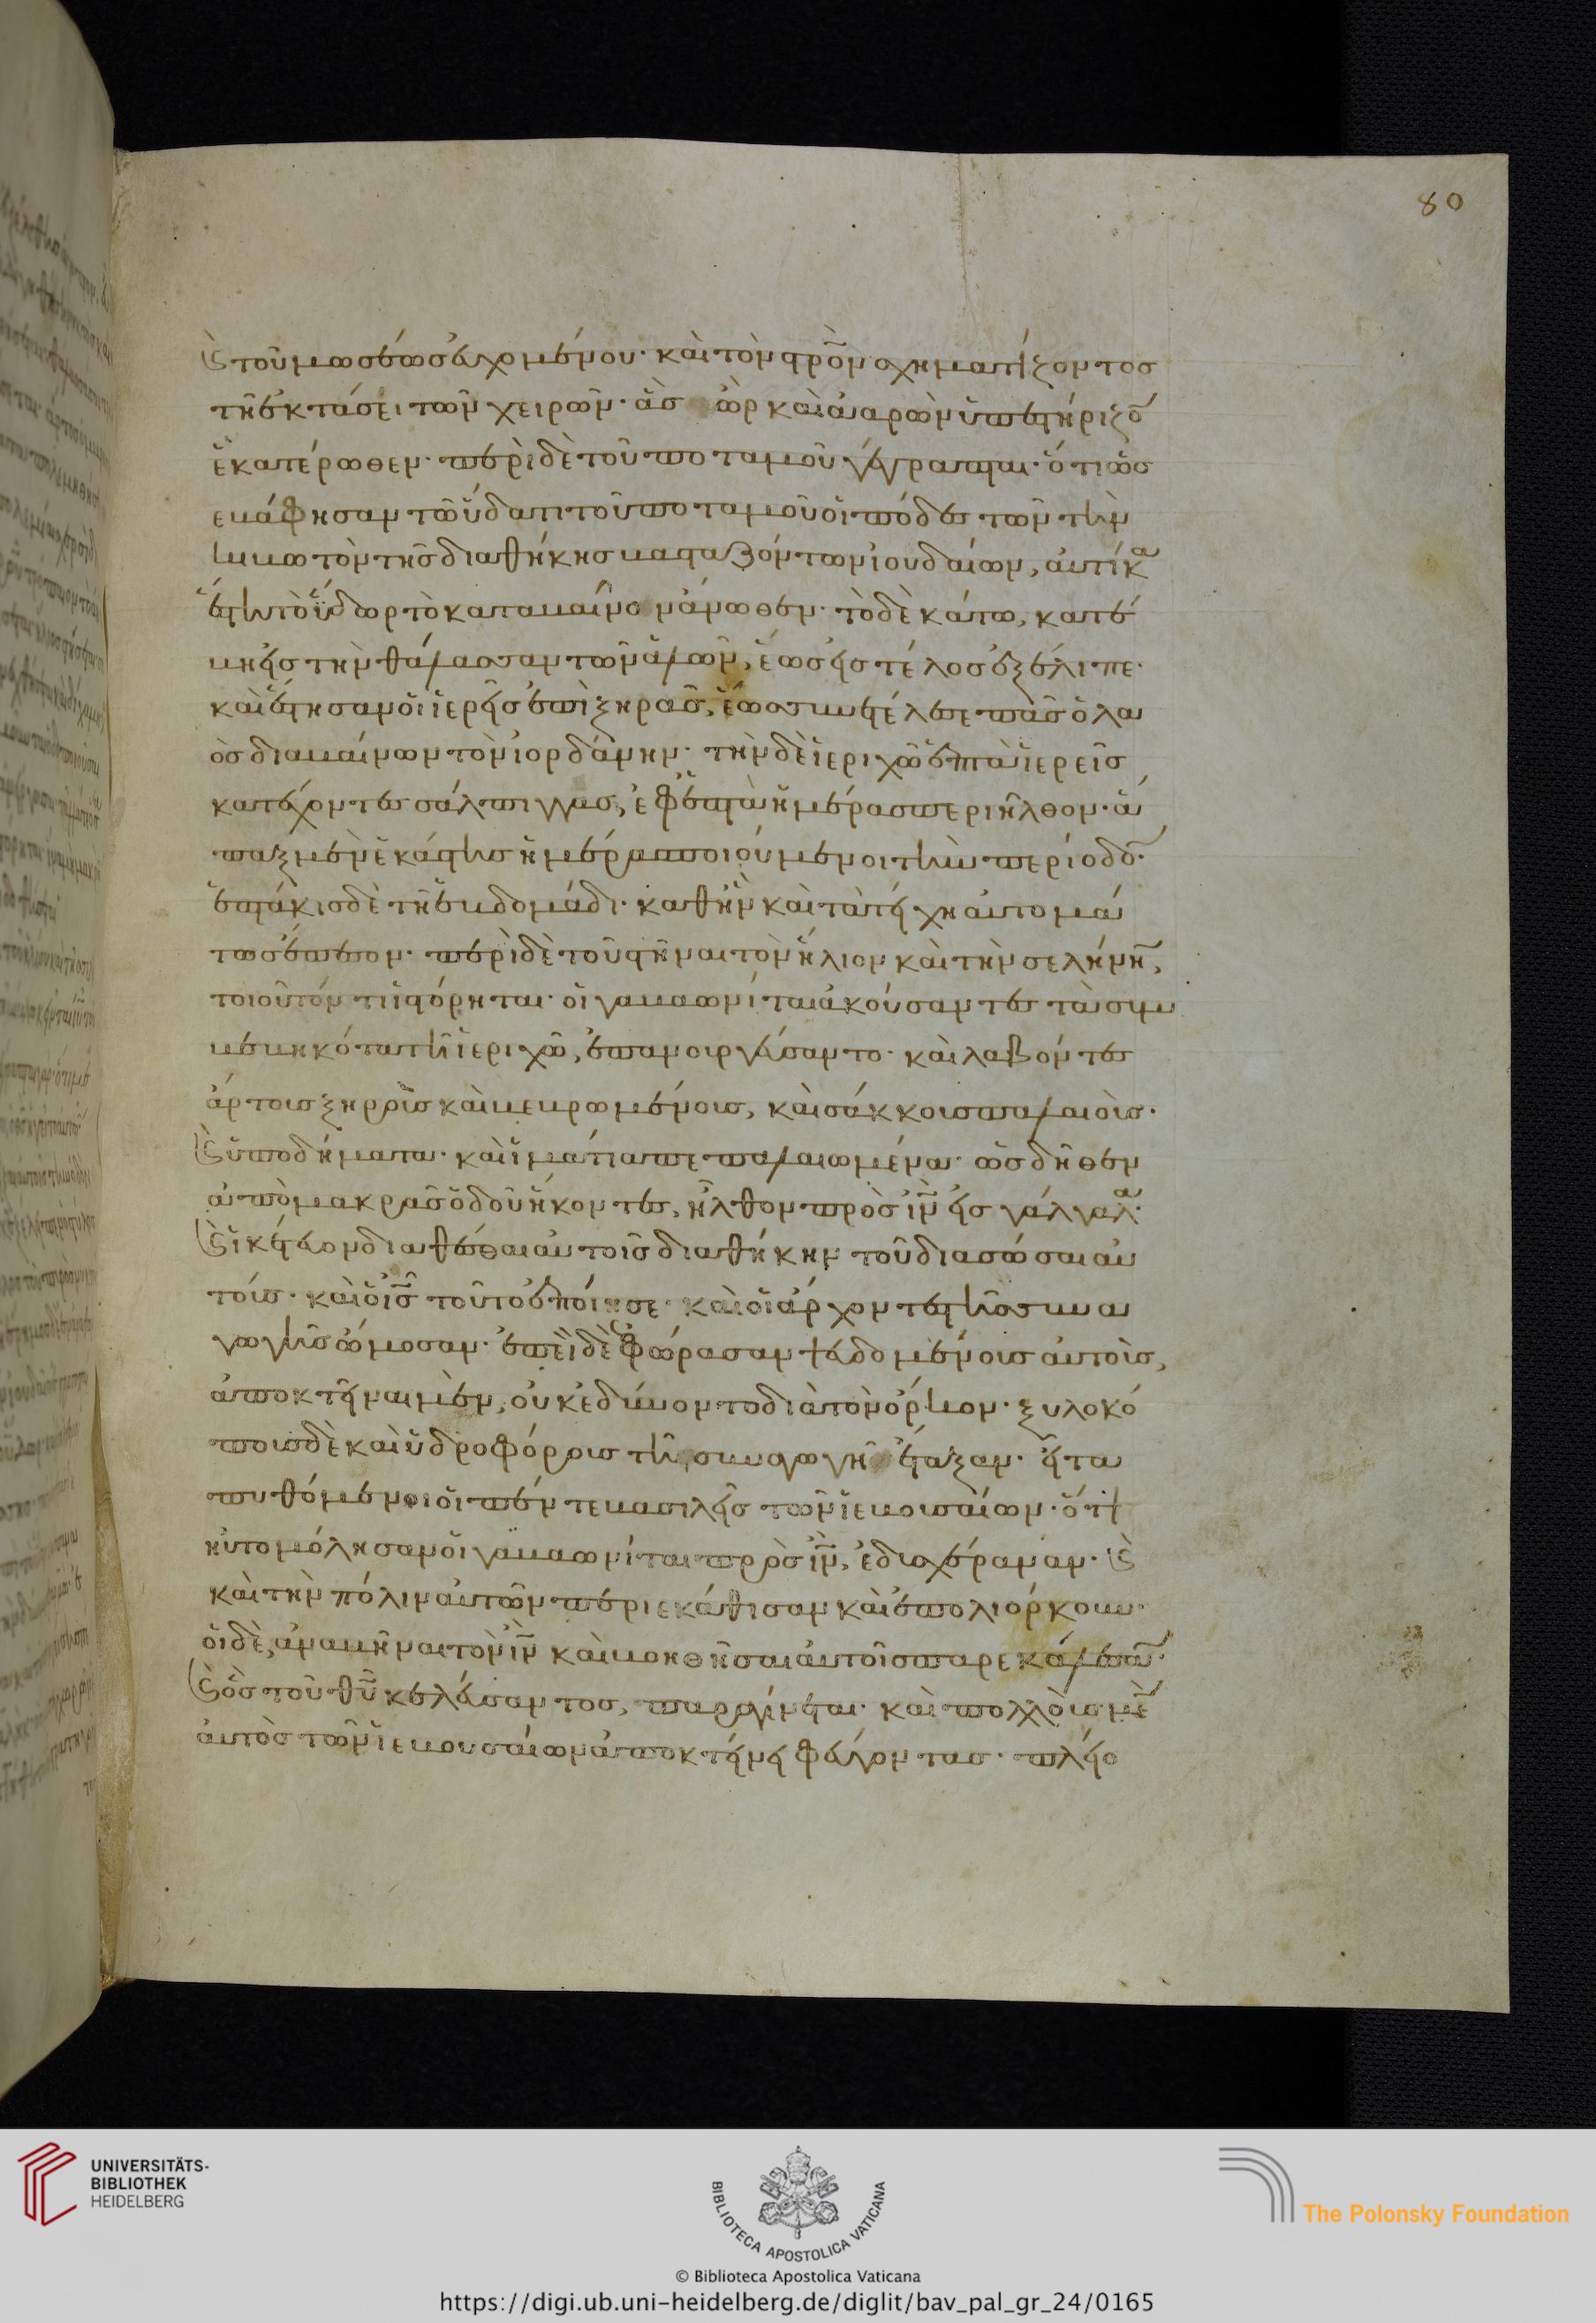 80
καὶ τοῦ μωσέως εὐχομένου· καὶ τὸν σταυρὸν σχηματίζοντος
τῆ ἐκτάσει τῶν χειρῶν· ἃς ὢρ καὶ ἀαρὼν ὑπεστήριζον
ἑκατέρωθεν· περὶ δὲ τοῦ ποταμοῦ γέγραπται· ὅτι ὡς
εβάφησαν τῶ ὕδατι τοῦ ποταμοῦ οἱ πόδες τῶν τὴν
κιβωτὸν τῆς διαθήκης βασταζόντων ἰουδαίων, αὐτίκα
ἔστη τὸ ὕδωρ τὸ καταβαῖνον ἄνωθεν· τὸ δὲ κάτω, κατέ
βη εἰς τὴν θάλασσαν τῶν ἁλῶν, ἕως εἰς τέλος ἐξέλιπε·
καὶ ἔστησαν οἱ ἱερεῖς ἐπὶ ξηρᾶς, ἕως συνετέλεσε πᾶς ὁ λα
ὸς διαβαίνων τὸν ἰορδάνην· τὴν δὲ ἱεριχῶ ἑπτὰ ἱερεῖς
κατέχοντες σάλπιγγας, ἐφ' ἑπτὰ ἡμέρας περιῆλθον· ἅ
παξ μὲν ἑκάστης ἡμέρας ποιούμενοι τὴν περίοδον·
ἑπτάκις δὲ τῆ ἑβδομάδι· καθ' ἣν καὶ τὰ τείχη αὐτομά
τως ἔπεσον· περὶ δὲ τοῦ στῆναι τὸν ἥλιον καὶ τὴν σελήνην,
τοιοῦτόν τι ἱστόρηται· οἱ γαβαωνίται ἀκούσαντες τὰ συμ
βεβηκότα τῆ ἱεριχῶ, ἐπανουργέσαντο· καὶ λαβόντες
άρτους ξηροὺς καὶ βεβρωμένους, καὶ σάκκους παλαιοὺς·
καὶ ὑποδήματα· καὶ ἱμάτια πεπαλαιωμένα· ὡς δῆθεν
ἀπὸ μακρᾶς ὁδοῦ ἥκοντες, ἦλθον πρὸς ἰν εἰς γάλγαλα·
καὶ ἱκέτευον διαθέσθαι αὐτοῖς διαθήκην τοῦ διασώσαι αὐ
τούς· καὶ ὁ ις τοῦτο ἐποίησε· καὶ οἱ άρχοντες τῆς συνα
γωγῆς ὤμοσαν· ἐπεὶ δὲ ἐφώρασαν ψευδομένους αὐτοὺς,
ἀποκτεῖναι μὲν, οὐκ εδύνοντο διὰ τὸν ὅρκον· ξυλοκό
πους δὲ καὶ ὑδροφόρους τῆ συναγωγῆ ἔταξαν· εἶτα
πυθόμενοι οἱ πέντε βασιλεῖς τῶν ἱεβουσαίων· ὅτι
ηὐτομόλησαν οἱ γαβαωνίται πρὸς ἰν, ἐδυσχέραναν·
καὶ τὴν πόλιν αὐτῶν περιεκάθισαν καὶ ἐπολιόρκουν·
οἱ δὲ, ἀναβῆναι τὸν ἰν καὶ βοηθῆσαι αὐτοῖς παρεκάλεσαν·
καὶ ὃς τοῦ θυ κελεύσαντος, παραγίνεται· καὶ πολλοὺς μὲν
αὐτὸς τῶν ἱεβουσαίων ἀποκτείνει φεύγοντας· πλείο
UNIVERSITÄTS-
BIBLIOTHEK
HEIDELBERG
BIBLIOTECA APOSTOLICA VATICANA
© Biblioteca Apostolica Vaticana
The Polonsky Foundation
https://digi.ub.uni-heidelberg.de/diglit/bav_pal_gr_24/0165